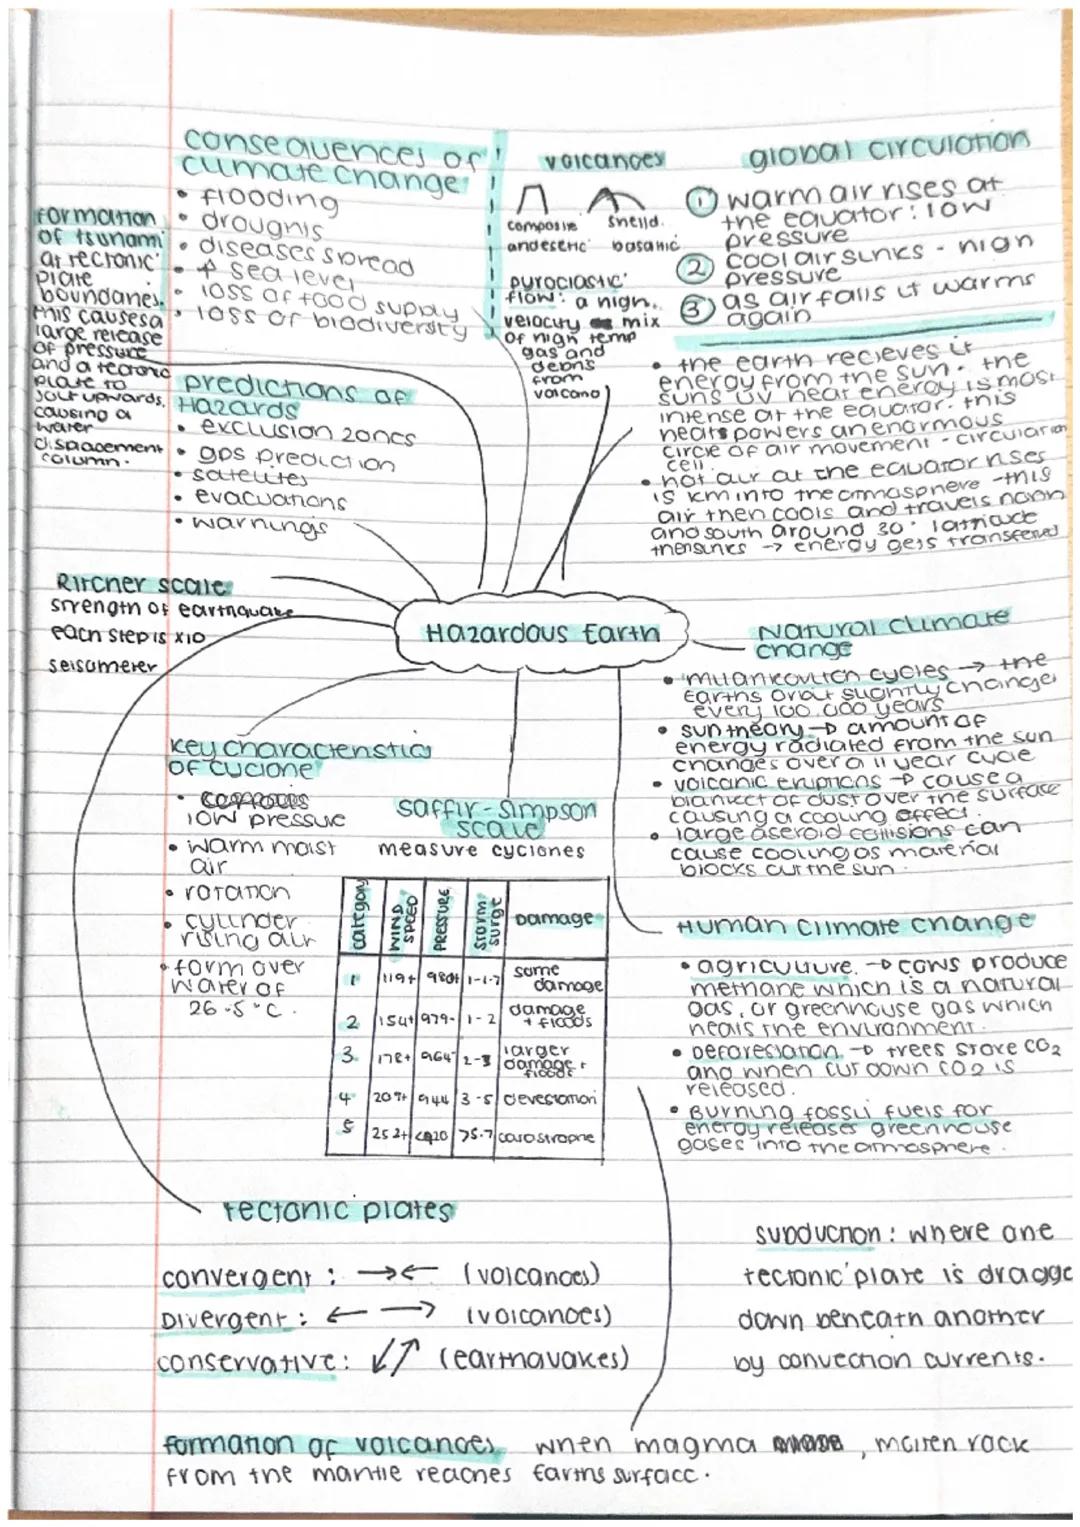 consequences of
climate change
• flooding
• droughts
• diseases spread
• ↑ sea level
• loss of food supply
• loss of biodiversity
volcanoes
composite shelld.
andesetic basaltic
pyroclastic
flow: a high.
velocity mix
of high temp
gas and
debris
from
volcano
global circulation
① warm air rises at
the equator: low
pressure
② cool air sinks - high
pressure
③ as air falls it warms
again
• the earth recieves it
energy from the sun. the
suns UV heat energy is most
intense at the equator. this
heat powers an enormous
circle of air movement - circular
cell.
• hot air at the equator rises
is km into the atmosphere - this
air then cools and travels north
and south around 30° latitude
then sinks → energy gets transferred
formation
of tsunami
at tectonic
plate
boundaries.
this causes a
large release
of pressure
and a tectonic
plate to
jolt upwards,
causing a
water
displacement
column.
predictions of
Hazards
• exclusion zones
• gps prediction
• satelites
• evacuations
• warnings
Ritcher scale
strength of earthquake
each step is x10
seisometer
Hazardous Earth
Natural climate
change
• milankovitch cycles → the
Earths orbit slightly changes
every 100,000 years
• sun theory → amount of
energy radiated from the sun
changes over a 11 year cycle
• volcanic eruptions → cause a
blanket of dust over the surface
causing a cooling effect.
• large aseroid collisions can
cause cooling as material
blocks out the sun.
key characteristics
of cyclone
• low pressure
• warm moist
air
• rotation
• cylinder
rising air
• form over
water of
26.5°C.
saffir-simpson
scale
measure cyclones
category WIND SPEED PRESSURE storm surge Damage
1 119+ 980+ 1-1.7 some damage
2 154+ 979- 1-2 damage + floods
3 178+ 964- 2-3 larger damage + floods
4 209+ 944 3-5 devestation
5 252+ <920 >5.7 catastrophe
Human climate change
• agriculture. → cows produce
methane which is a natural
gas, or greenhouse gas which
heats the environment.
• Deforestation. → trees store CO2
and when cut down CO2 is
released.
• Burning fossil fuels for
energy releases greenhouse
gases into the atmosphere.
tectonic plates
convergent: →← (volcanoes)
Divergent: ← → (volcanoes)
conservative: ↙↗ (earthquakes)
subduction: where one
tectonic plate is dragge
down beneath another
by convection currents.
formation of volcanoes when magma , molten rock
from the mantle reaches Earths surface.